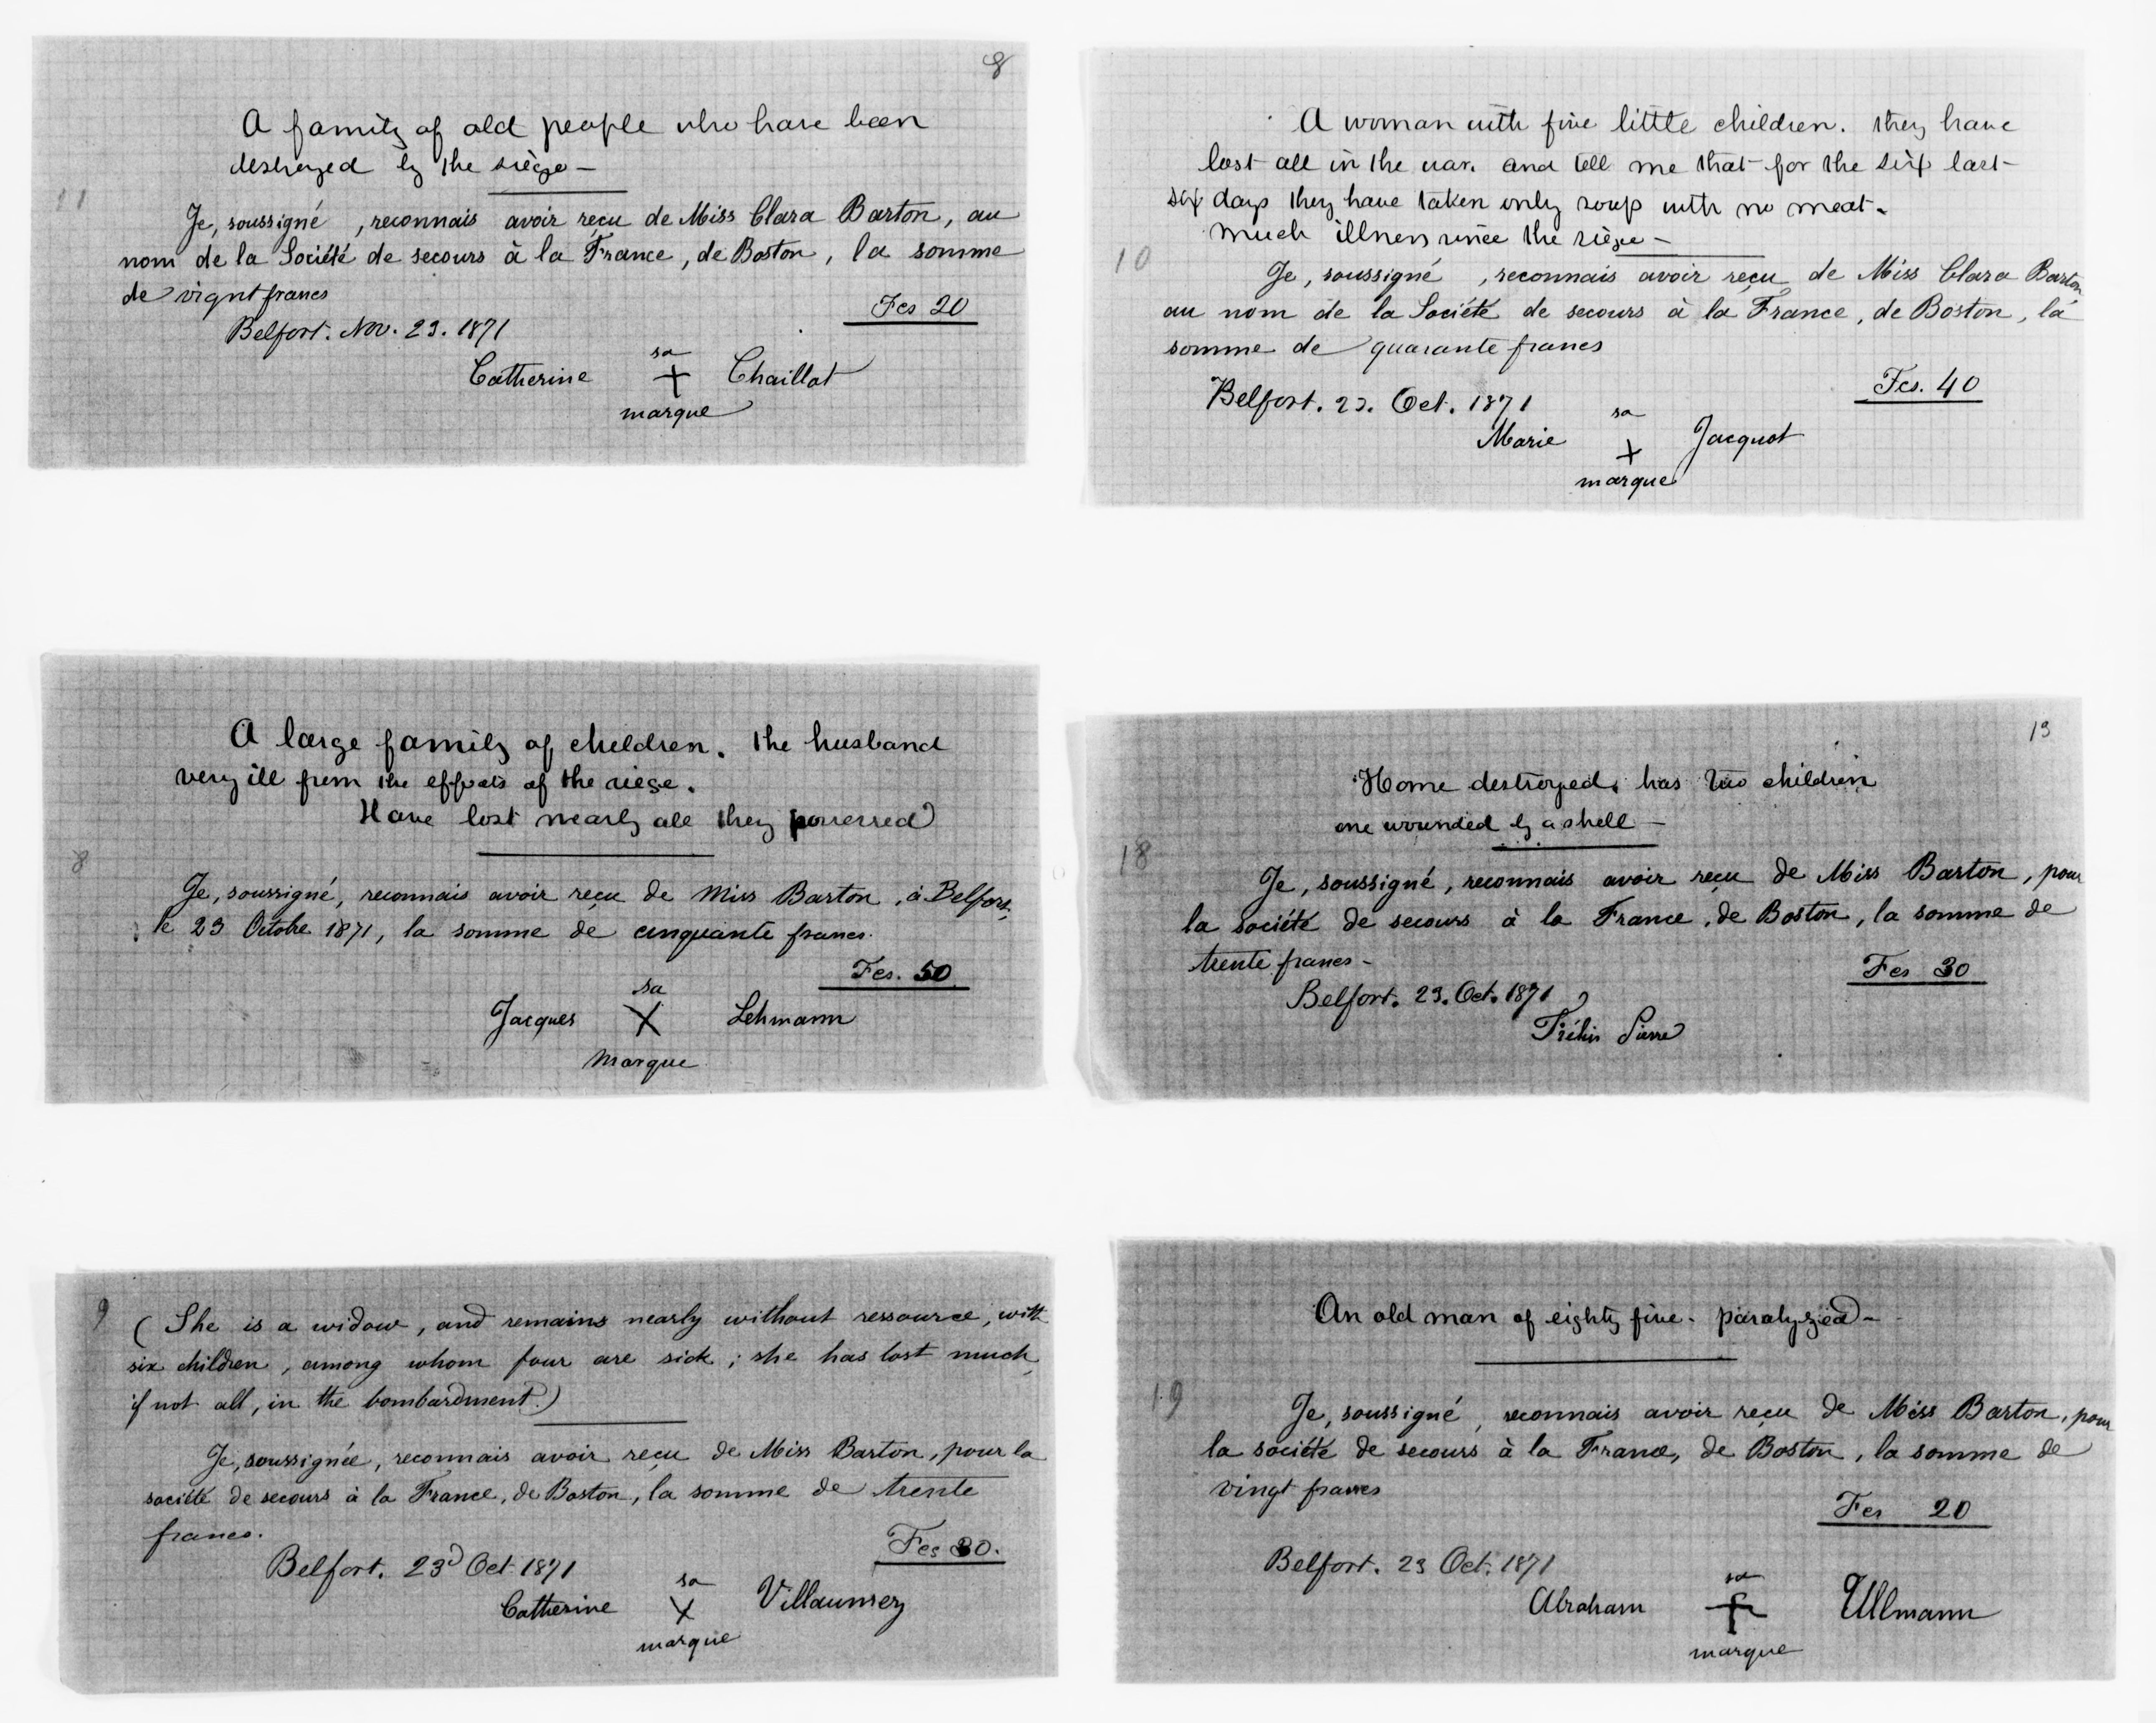 8
A family of old people who have been
destroyed by the siège —
11
Je, soussigné , reconnais avoir reçu de Miss Clara Barton, au
nom de la Société de secours à la France, de Boston, la somme
de vignt francs
Fcs 20
Belfort. Nov. 23. 1871
sa
Catherine + Chaillot
marque
A woman with five little children. they have
lost all in the war. and tell me that for the six last
six days they have taken only soup with no meat.
much illness since the siège —
10
Je, soussigné , reconnais avoir reçu de Miss Clara Barton
au nom de la Société de secours à la France, de Boston, la
somme de quarante francs
Fcs. 40
Belfort. 23. Oct. 1871
sa
Marie + Jacquot
marque
A large family of children. the husband
very ill from the effects of the siege.
Have lost nearly all they possessed
8
Je, soussigné, reconnais avoir reçu de Miss Barton, à Belfort,
le 23 Octobre 1871, la somme de cinquante francs.
Fcs. 50
sa
Jacques X Lehmann
Marque
13
Home destroyed. has two children
one wounded by a shell —
18
Je, soussigné, reconnais avoir reçu de Miss Barton, pour
la société de secours à la France, de Boston, la somme de
trente francs -
Fcs 30
Belfort. 23. Oct. 1871
Pierre
9
(She is a widow, and remains nearly without ressource, with
six children, among whom four are sick; she has lost much,
if not all, in the bombardment.)
Je, soussignée, reconnais avoir reçu de Miss Barton, pour la
société de secours à la France, de Boston, la somme de trente
francs.
Fcs 30.
Belfort. 23d Oct 1871
sa
Catherine X Villaumey
marque
An old man of eighty five - paralyzed -
19
Je, soussigné, reconnais avoir reçu de Miss Barton, pour
la société de secours à la France, de Boston, la somme de
vingt francs
Fcs 20
Belfort. 23 Oct. 1871
sa
Abraham + Ullmann
marque